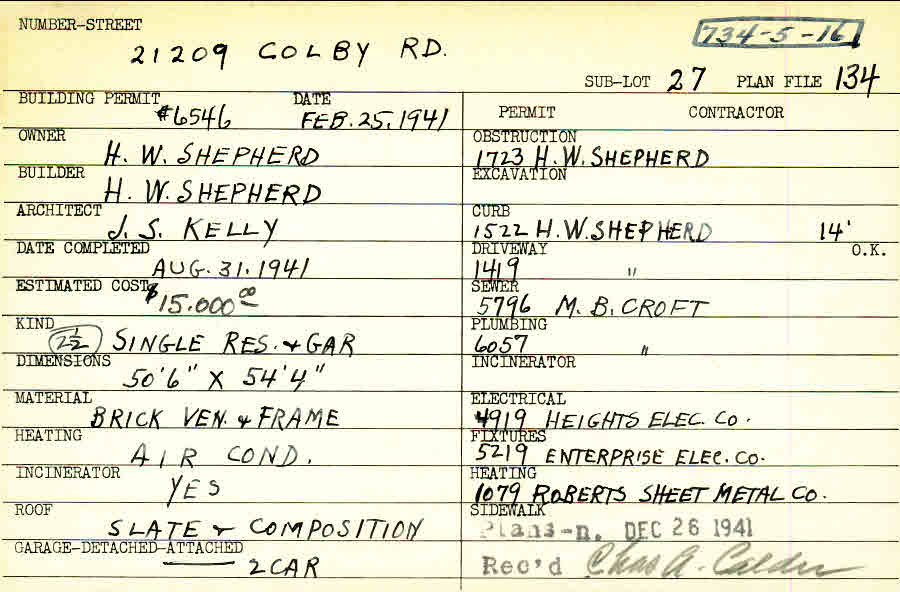 NUMBER-STREET
21209 COLBY RD.
734-5-16
SUB-LOT 27 PLAN FILE 134
BUILDING PERMIT DATE
#6546 FEB. 25, 1941
OWNER
H. W. SHEPHERD
BUILDER
H. W. SHEPHERD
ARCHITECT
J. S. KELLY
DATE COMPLETED
AUG. 31, 1941
ESTIMATED COST
$15.000 00
KIND
2 1/2 SINGLE RES. & GAR
DIMENSIONS
50'6" X 54'4"
MATERIAL
BRICK VEN. & FRAME
HEATING
AIR COND.
INCINERATOR
YES
ROOF
SLATE & COMPOSITION
GARAGE-DETACHED-ATTACHED
2 CAR
PERMIT CONTRACTOR
OBSTRUCTION
1723 H. W. SHEPHERD
EXCAVATION
CURB
1522 H. W. SHEPHERD 14'
DRIVEWAY O.K.
1419 "
SEWER
5796 M. B. CROFT
PLUMBING
6057 "
INCINERATOR
ELECTRICAL
4919 HEIGHTS ELEC. CO.
FIXTURES
5219 ENTERPRISE ELEC. CO.
HEATING
1079 ROBERTS SHEET METAL CO.
SIDEWALK
Plans-n. DEC 26 1941
Rec'd Chas A. Calder